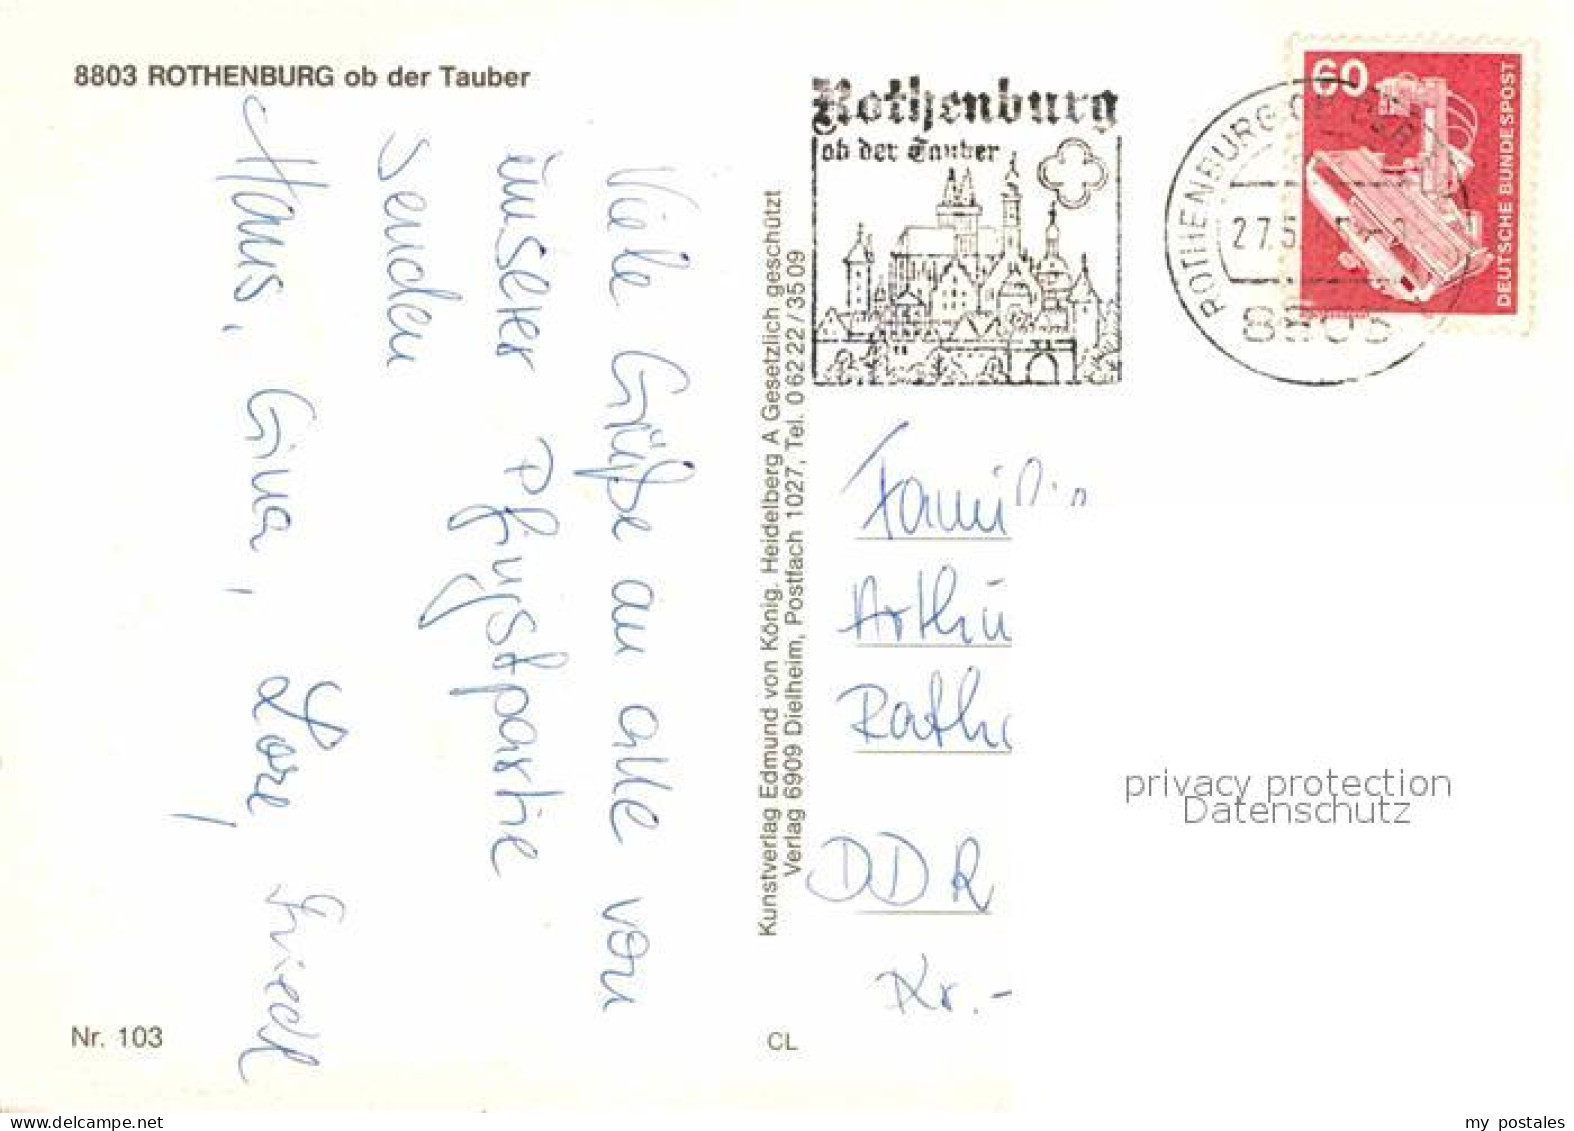 8803 ROTHENBURG ob der Tauber
Viele Grüße an alle von
unserer Pfingstpartie
senden
Hans, Gina, Lore,
Friedl
Nr. 103
Kunstverlag Edmund von König. Heidelberg A Gesetzlich geschützt
Verlag 6909 Dielheim, Postfach 1027, Tel. 0 62 22 / 35 09
CL
Rothenburg
ob der Tauber
ROTHENBURG OB DER
27.5.
8803
60
DEUTSCHE BUNDESPOST
Famil
Arthu
Rath
DDR
Kr.-
privacy protection
Datenschutz
my postales